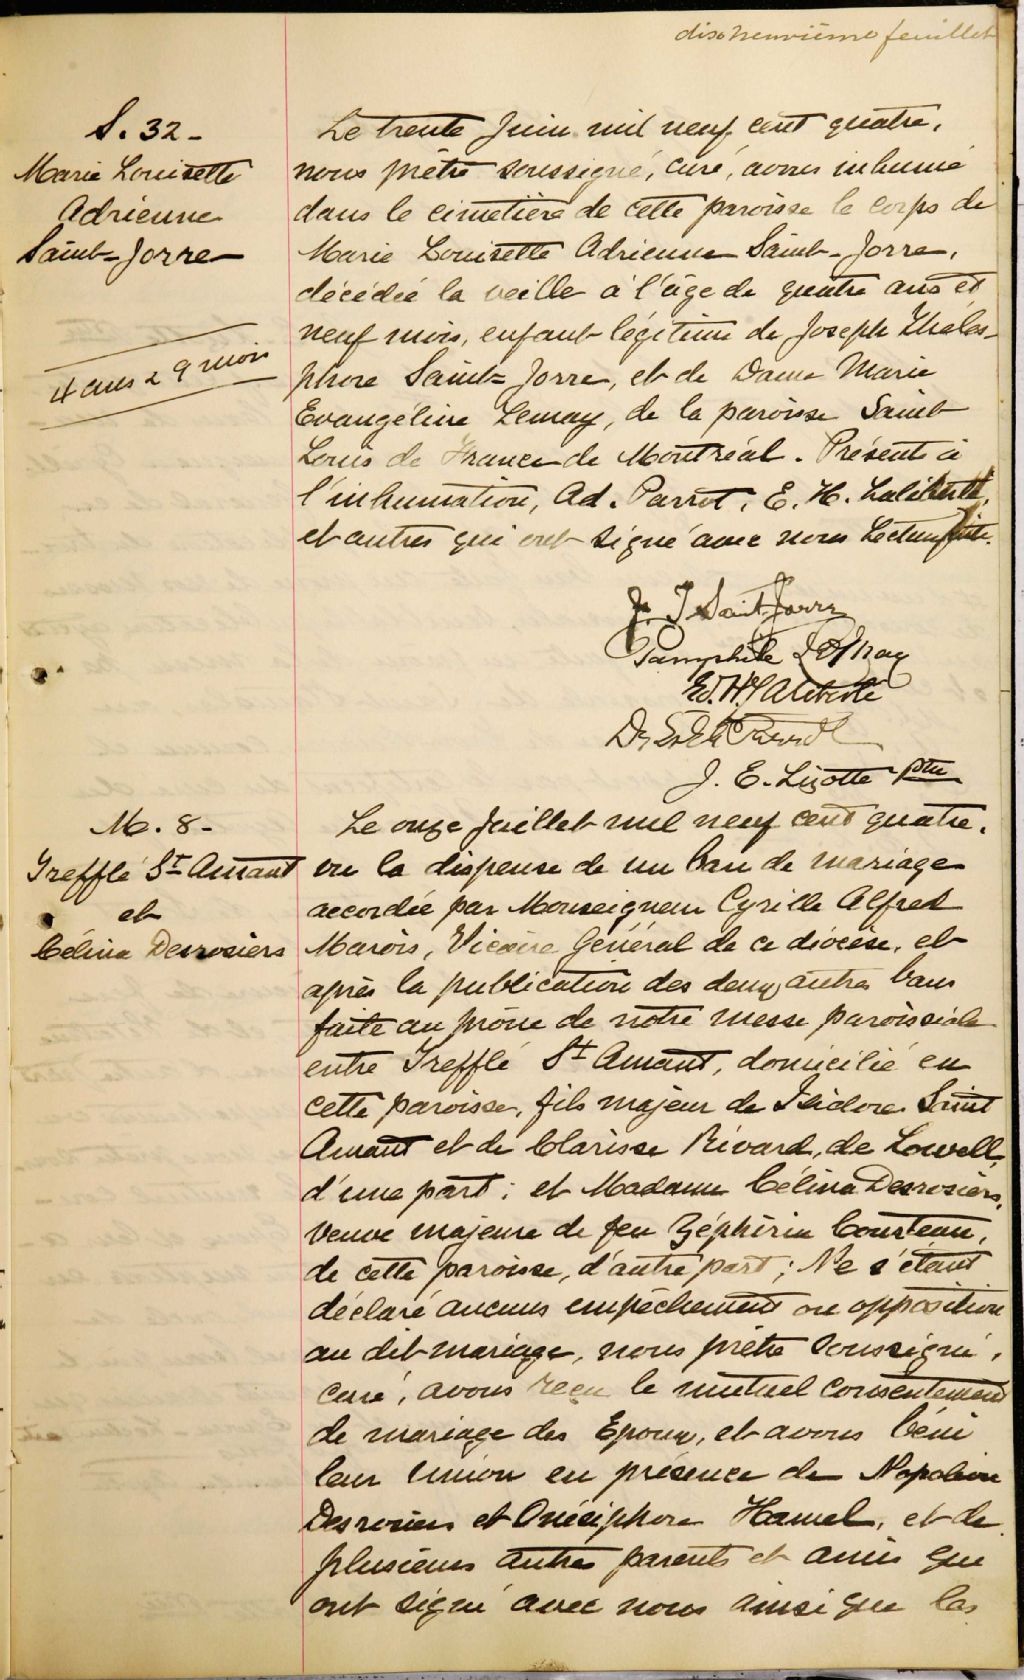 dix neuvième feuillet
S. 32 -
Marie Louisette
Adrienne
Saint-Jorre
4 ans & 9 mois
Le trente Juin mil neuf cent quatre,
nous prêtre soussigné, curé, avons inhumé
dans le cimetière de cette paroisse le corps de
Marie Louisette Adrienne Saint-Jorre,
décédée la veille à l'âge de quatre ans et
neuf mois, enfant légitime de Joseph Théles-
phore Saint-Jorre, et de Dame Marie
Evangéline Lemay, de la paroisse Saint
Louis de France de Montréal. Présents à
l'inhumation, Ad. Parrot, E. H. Laliberté,
et autres qui ont signé avec nous Lecture faite.
J. T Saint-Jorre
Pamphile LeMay
Ed. H. Laliberté
J. E. Lizotte ptre
M. 8 -
Trefflé St Amant
et
Célina Desrosiers
Le onze Juillet mil neuf cent quatre,
vu la dispense de un ban de mariage
accordée par Monseigneur Cyrille Alfred
Marois, Vicaire Général de ce diocèse, et
après la publication des deux autres bans
faite au prône de notre messe paroissiale
entre Trefflé St Amant, domicilié en
cette paroisse, fils majeur de Isidore Saint
Amant et de Clarisse Rivard, de Lowell,
d'une part; et Madame Célina Desrosiers,
veuve majeure de feu Zéphirin Cousteau,
de cette paroisse, d'autre part; Ne s'étant
déclaré aucuns empêchement ou opposition
au dit mariage, nous prêtre soussigné,
curé, avons reçu le mutuel consentement
de mariage des Epoux, et avons béni
leur union en présence de Napoléon
Desrosiers et Onésiphore Hamel, et de
plusieurs autres parents et amis qui
ont signé avec nous ainsi que les